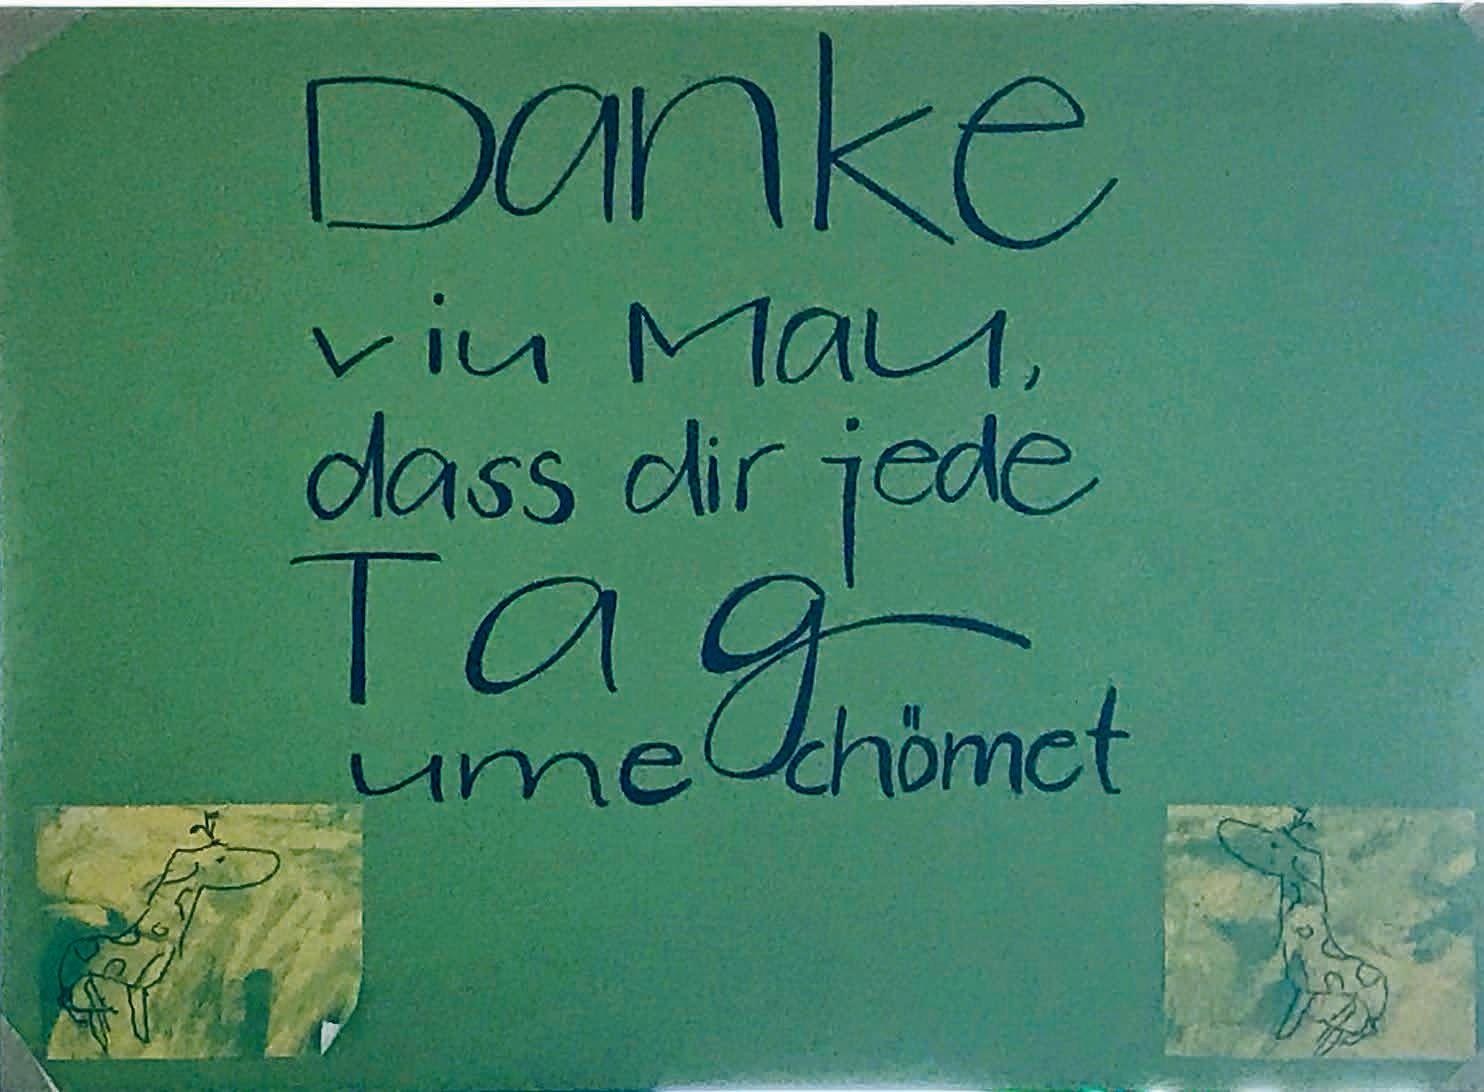 Danke
viu Mau,
dass dir jede
Tag
ume chömet